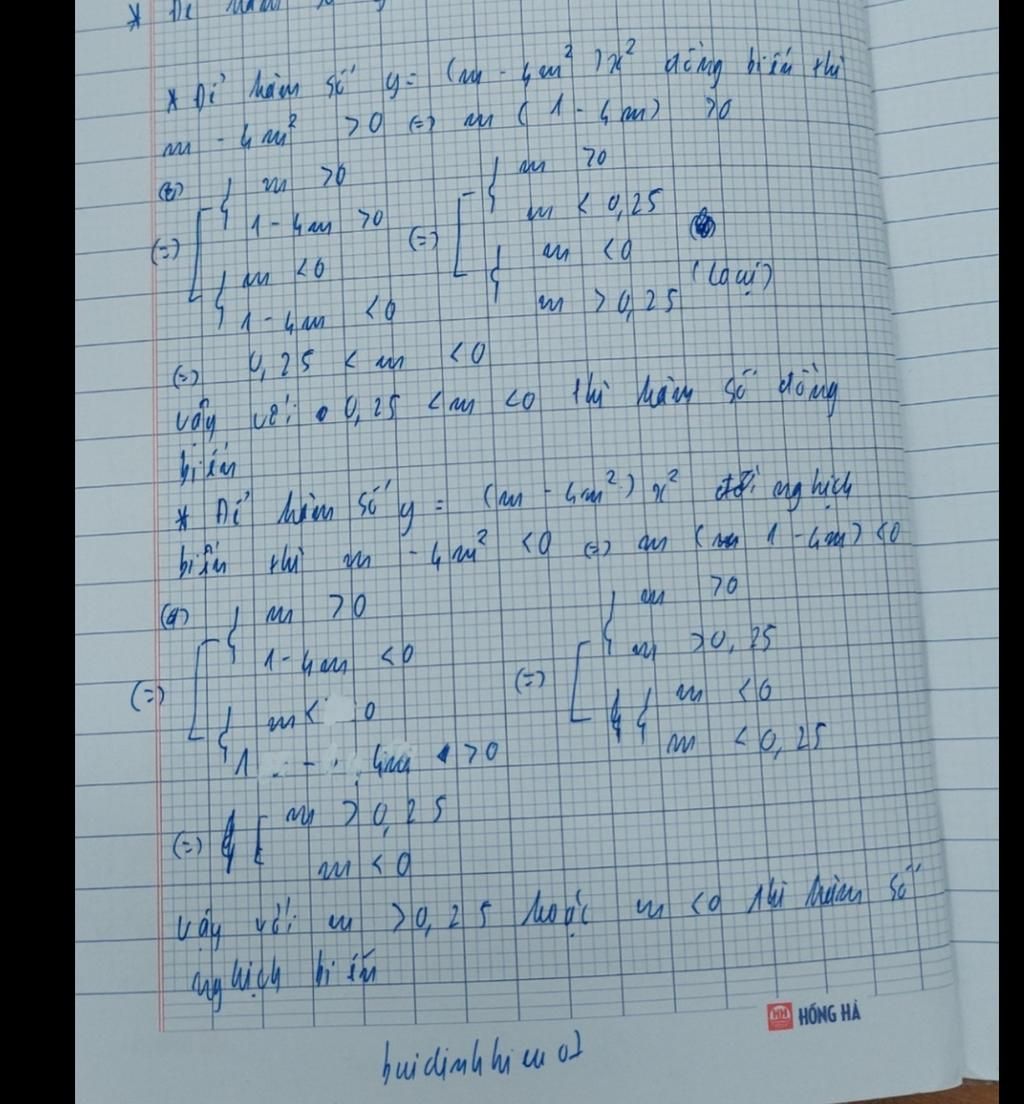 * Để hàm
* Để hàm số y = (m - 4m²)x² đồng biến thì
m - 4m² > 0 (=) m(1 - 4m) > 0
(=) [ { m > 0
1 - 4m > 0
{ m < 0
1 - 4m < 0
(=) [ { m > 0
m < 0,25
{ m < 0
m > 0,25 (loại)
(=) 0,25 < m < 0
Vậy với 0,25 < m < 0 thì hàm số đồng
biến
* Để hàm số y = (m - 4m²)x² nghịch
biến thì m - 4m² < 0 (=) m(1 - 4m) < 0
(=) [ { m > 0
1 - 4m < 0
{ m < 0
1 - 4m > 0
(=) [ { m > 0
m > 0,25
{ m < 0
m < 0,25
(=) [ m > 0,25
m < 0
Vậy với m > 0,25 hoặc m < 0 thì hàm số
nghịch biến
HH HỒNG HÀ
buidinhhieu07